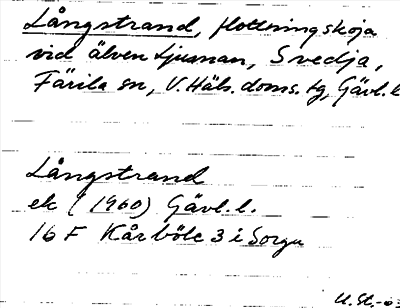 Långstrand, flottningskoja
vid älven Ljusnan, Svedja,
Färila sn, V. Häls. doms. tg, Gävl. l
Långstrand
ek (1960) Gävl. l.
16 F Kårböle 3 i Sorgu
U. St. -63